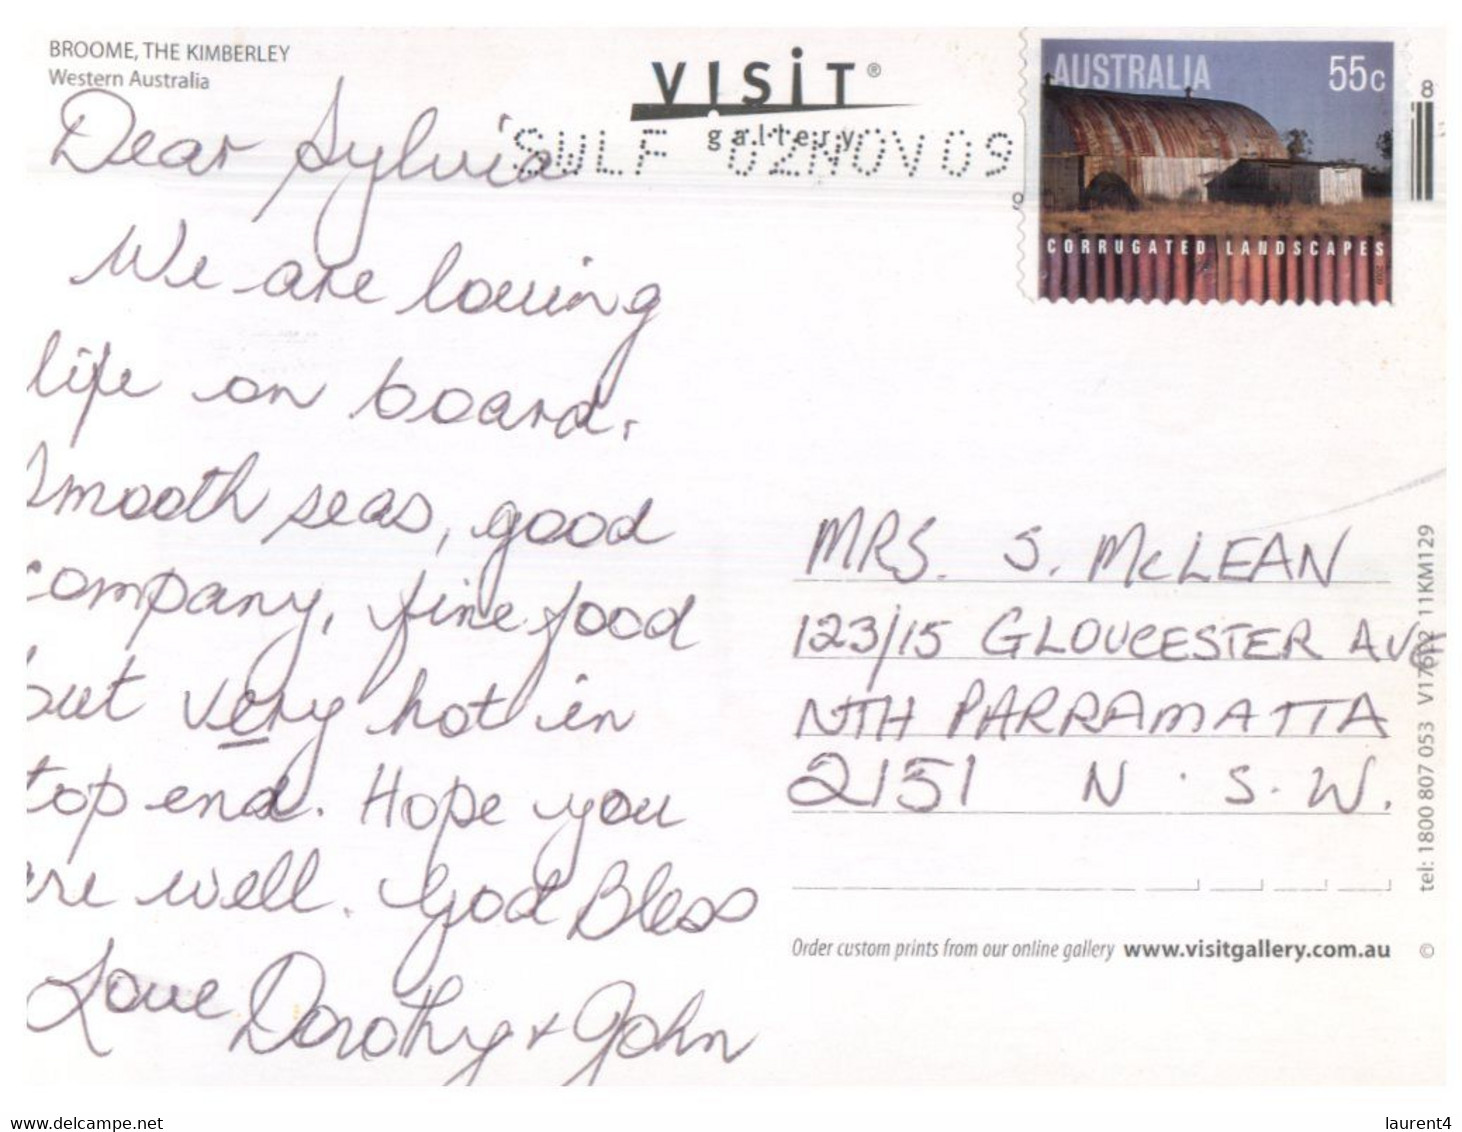 BROOME, THE KIMBERLEY
Western Australia
VISIT®
gallery
SWLF 02NOV09
AUSTRALIA 55c
CORRUGATED LANDSCAPES
2009
Dear Sylvia
We are loving
life on board.
Smooth seas, good
company, fine food
but very hot in
top end. Hope you
are well. God Bless
Love Dorothy + John
MRS. S. McLEAN
123/15 GLOUCESTER AVE
NTH PARRAMATTA
2151 N.S.W.
Order custom prints from our online gallery www.visitgallery.com.au ©
tel: 1800 807 053 11KM129
www.delcampe.net
laurent4